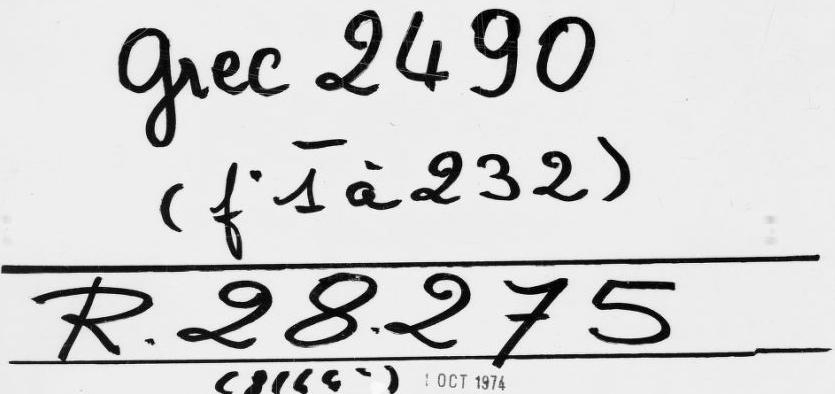 Grec 2490
(f. 1 à 232)
R. 28.275
OCT 1974